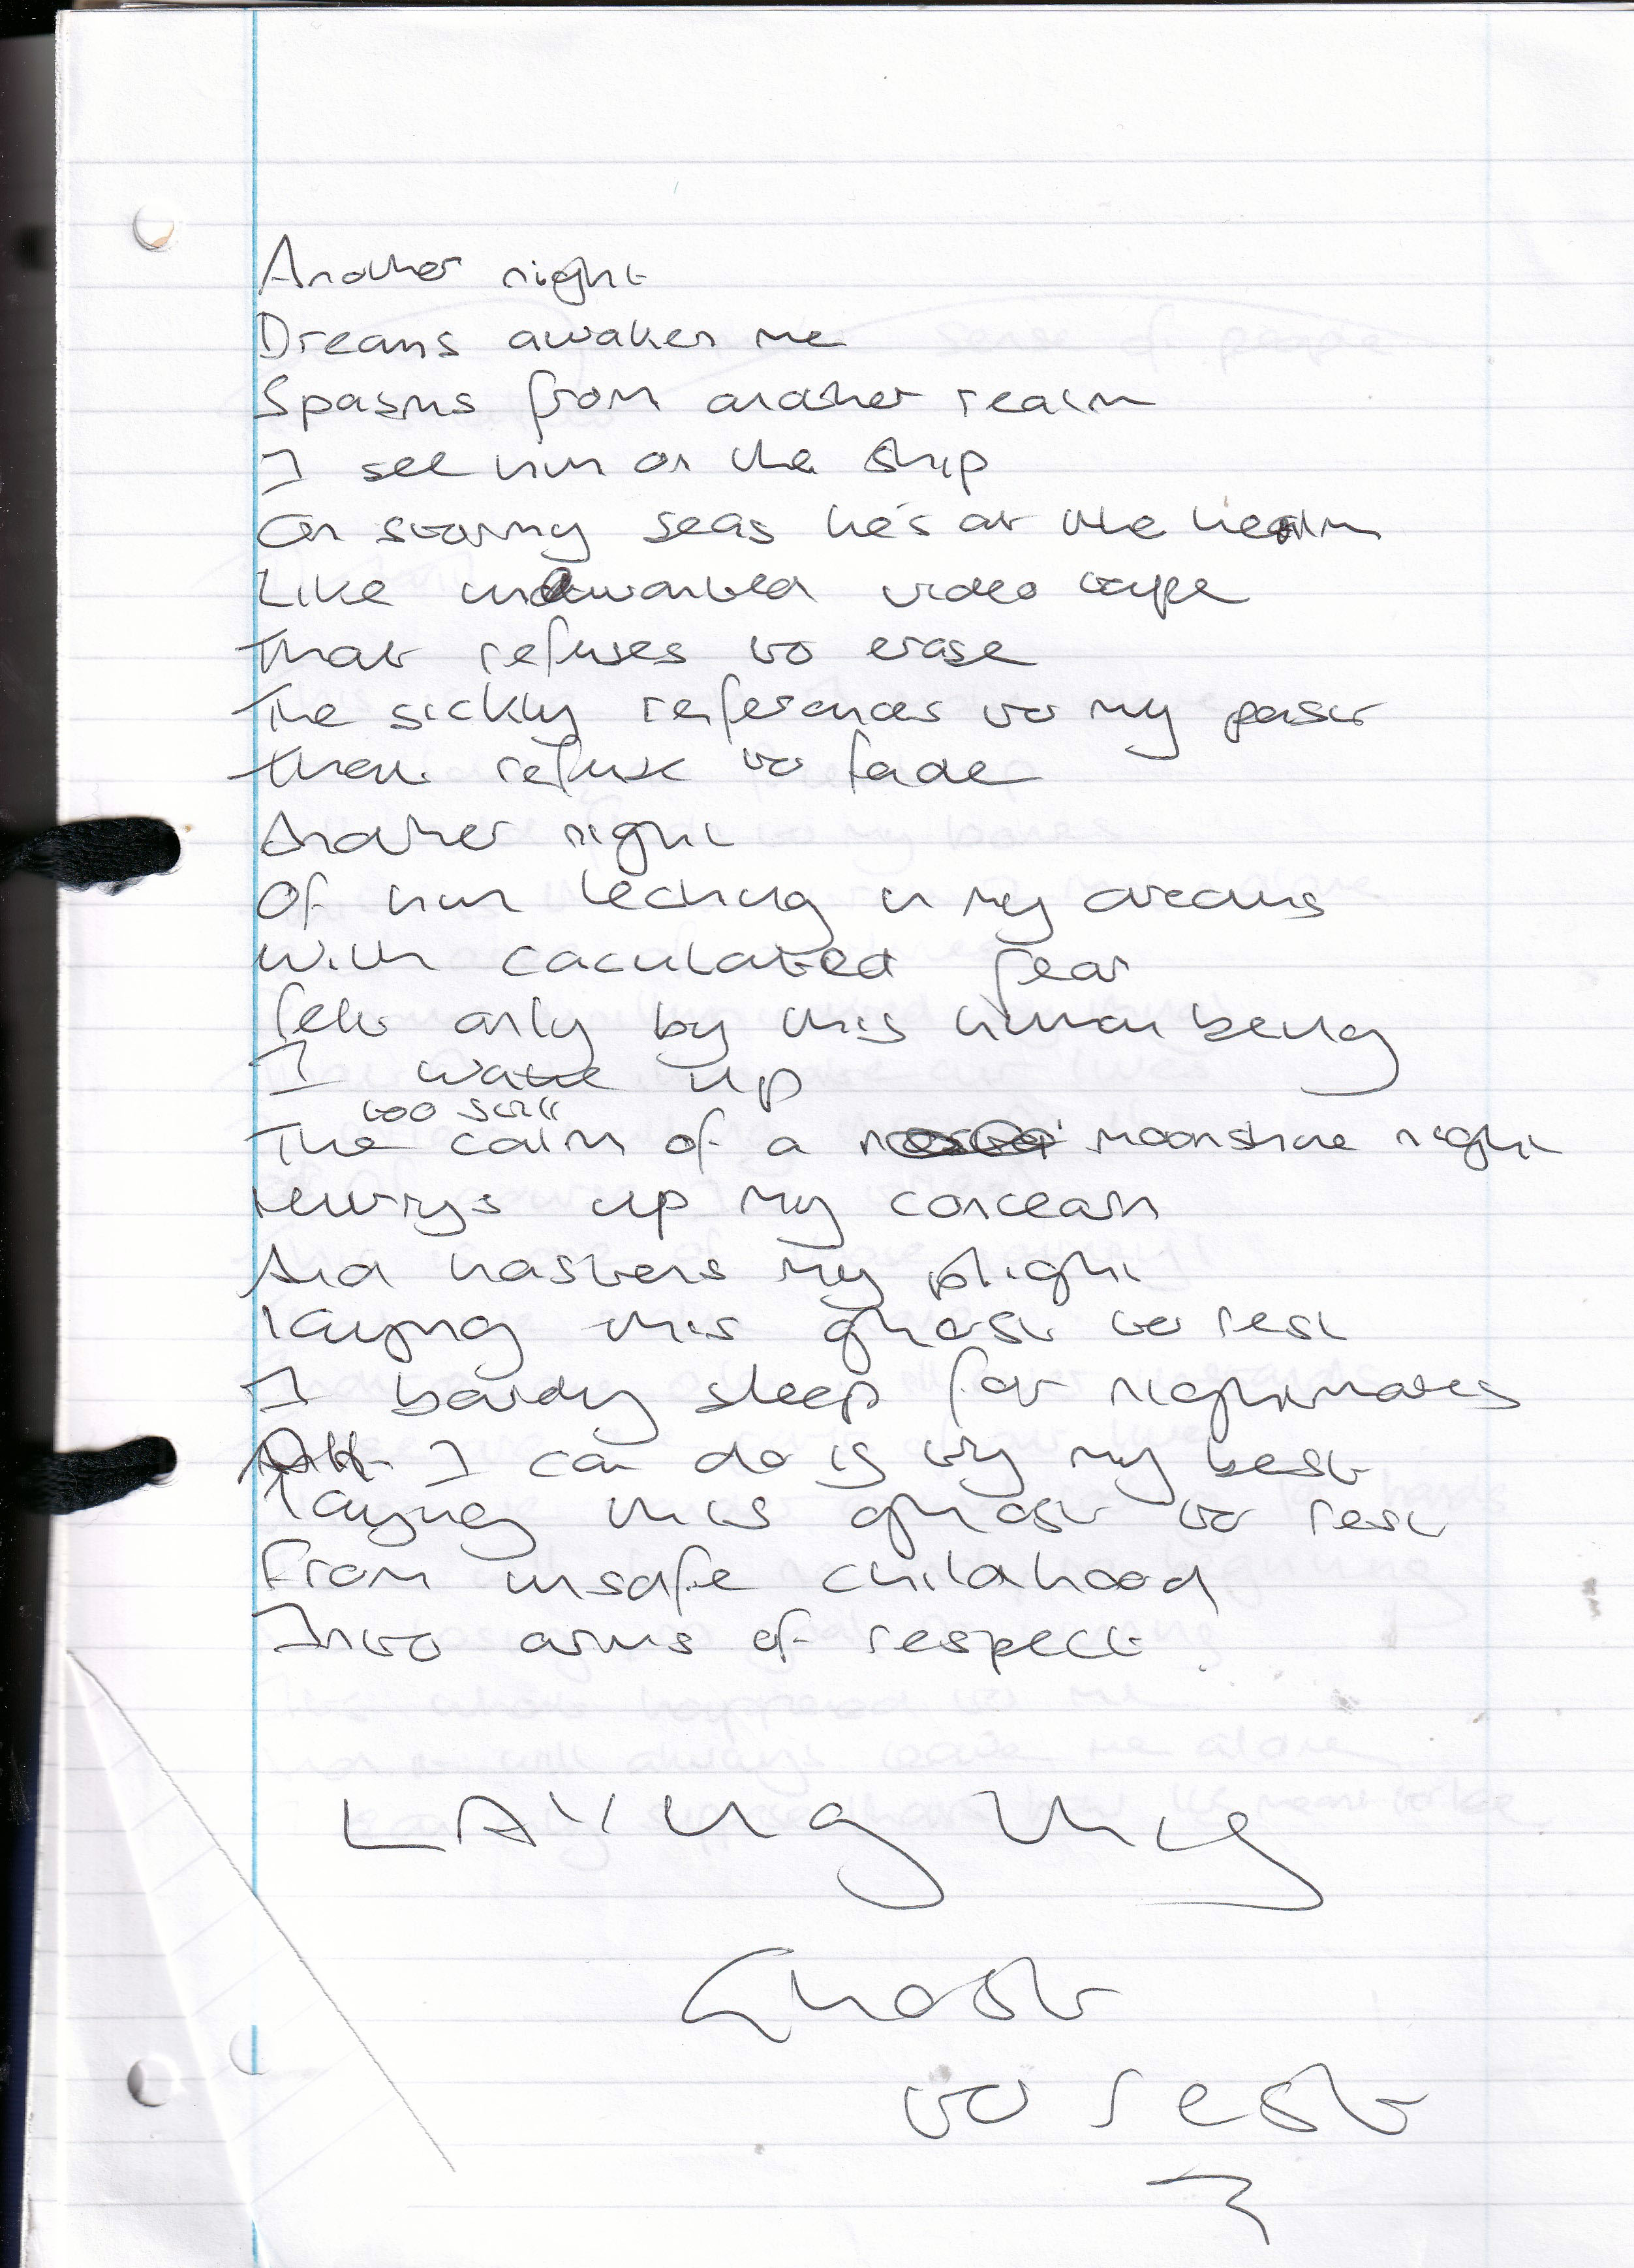 Another night
Dreams awaken me
Spasms from another realm
I see him on the ship
On stormy seas he's at the healm
Like unwanted video tape
That refuses to erase
The sickly references to my past
That refuse to fade
Another night
Of him leching in my dreams
With caculated fear
felt only by this human being
I wake up
too still
The calm of a moonshine night
up my concearn
And hastens my plight
laying this ghost to rest
I barely sleep for nightmares
All I can do is try my best
laying this ghost to rest
From unsafe childhood
Into arms of respect
LAYing this
Ghost
to rest